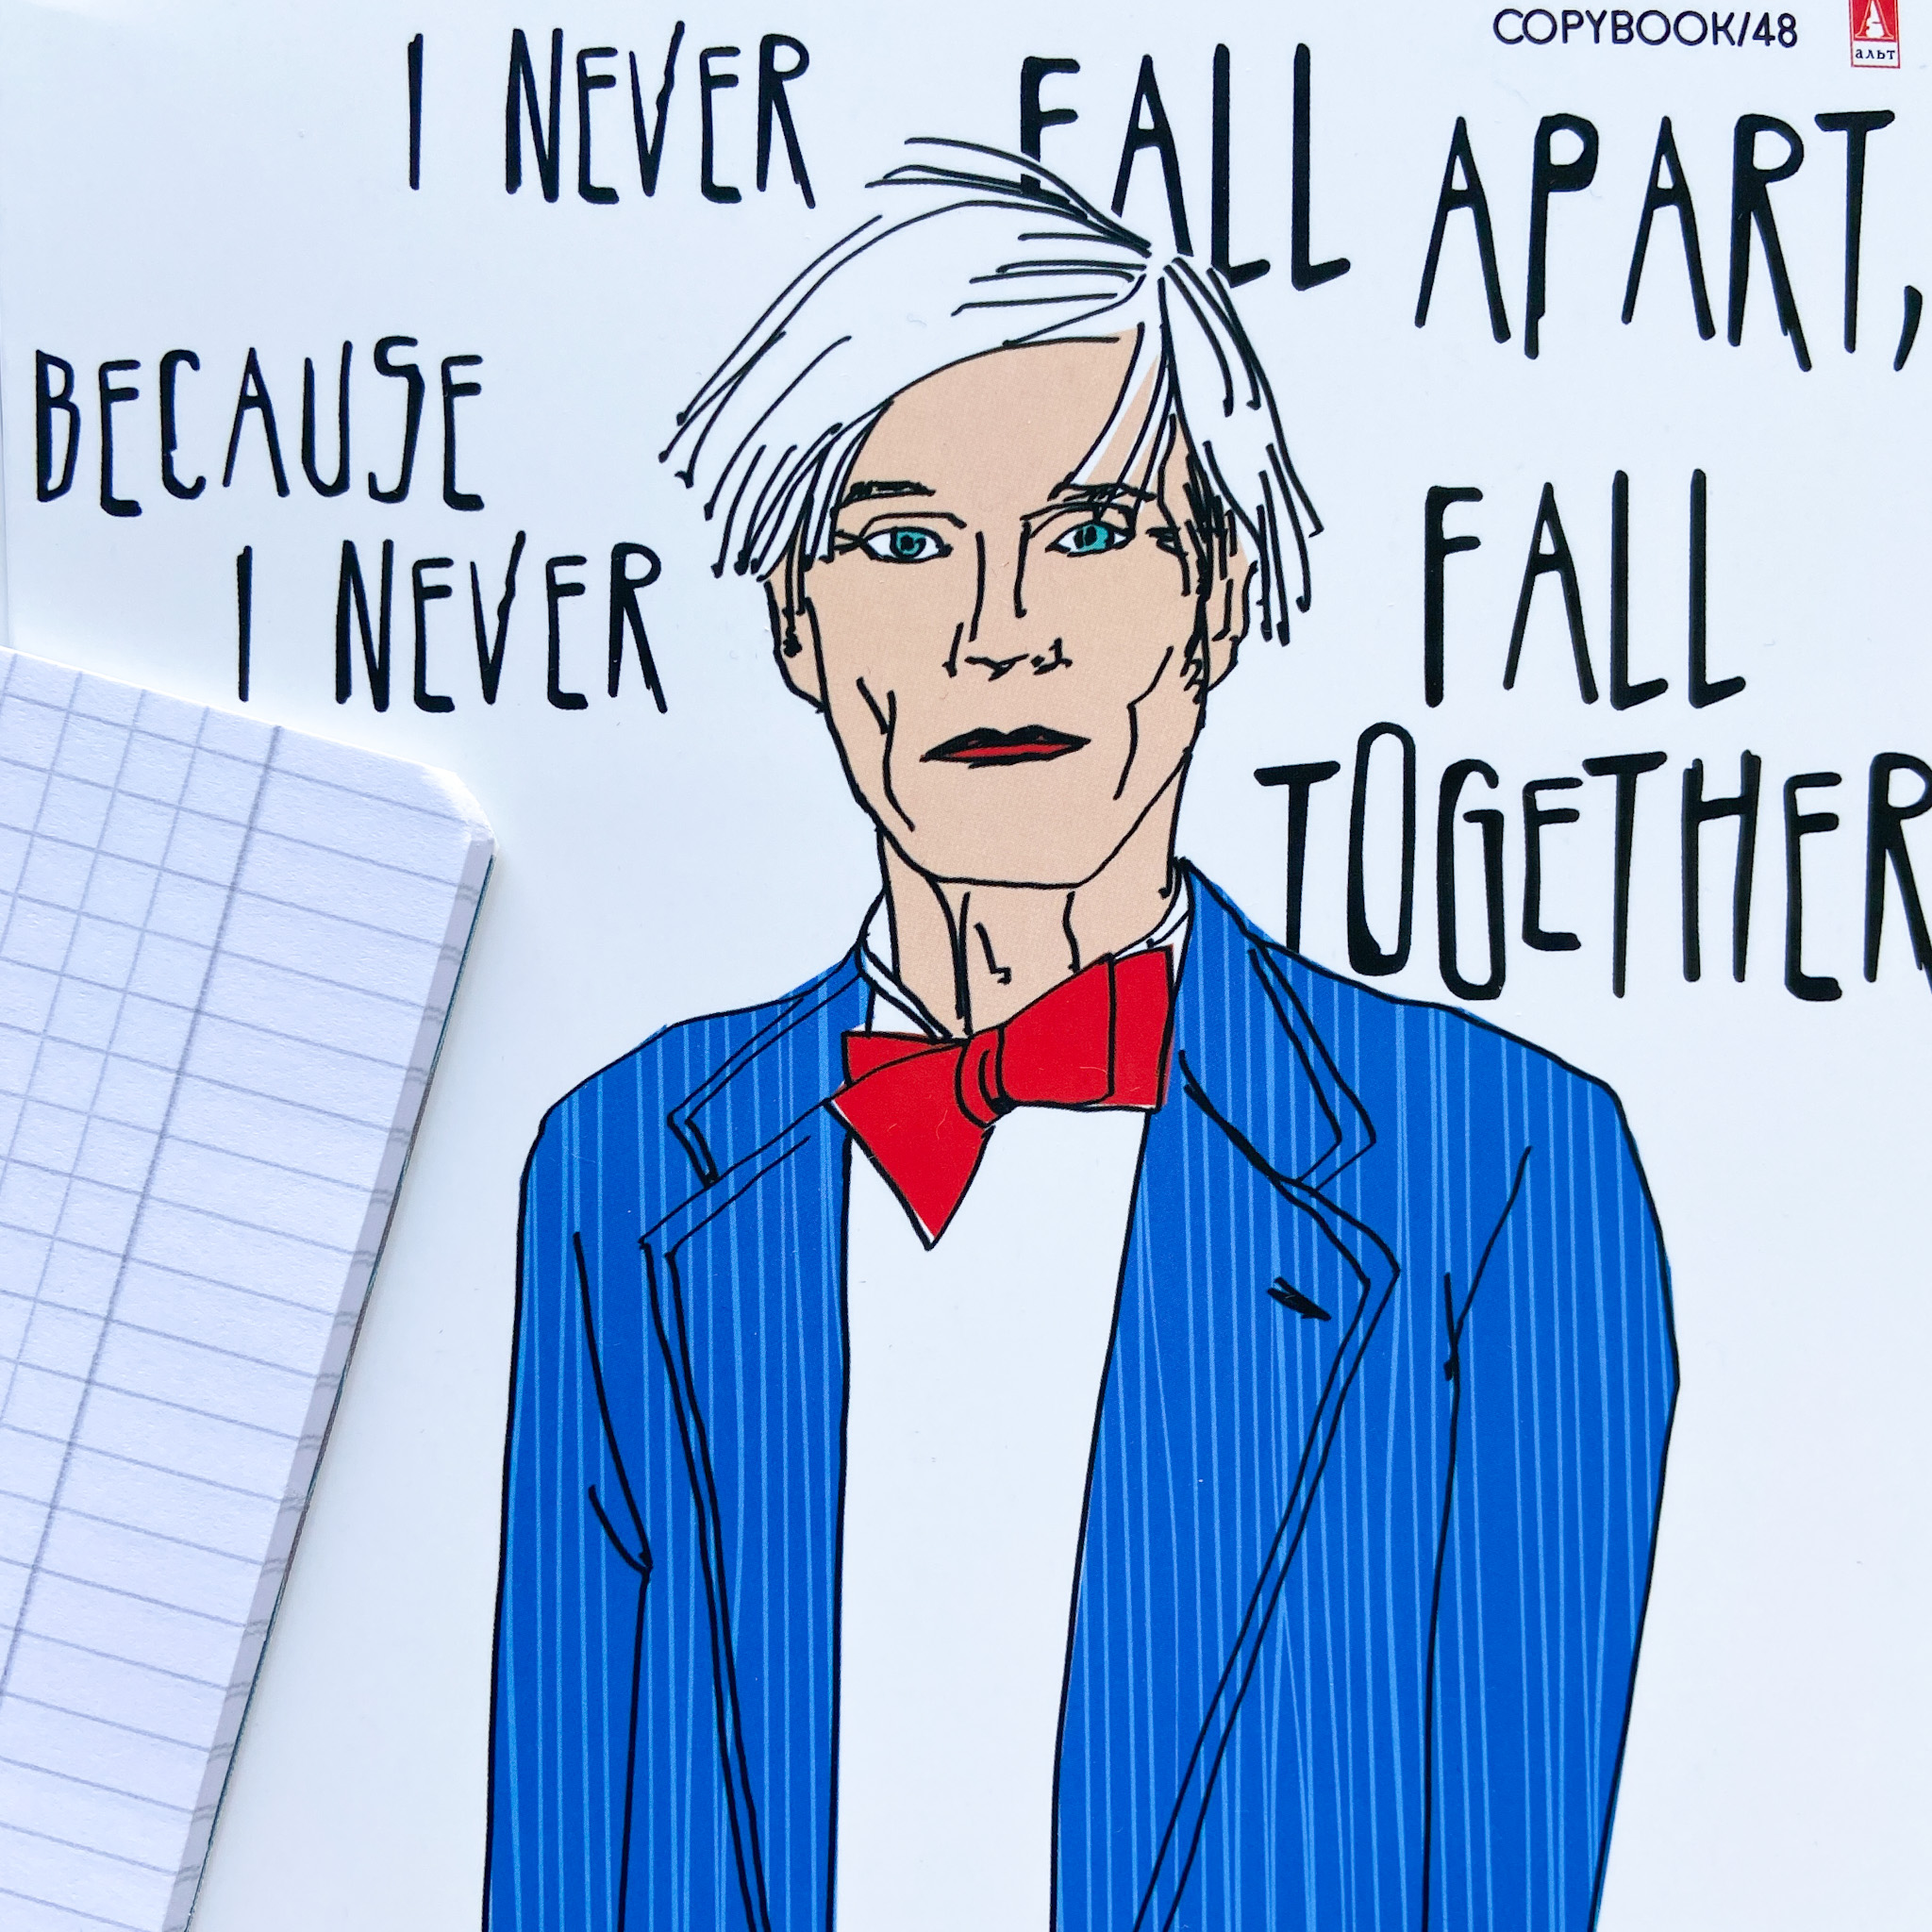 COPYBOOK/48
А
альт
I NEVER FALL APART,
BECAUSE
I NEVER FALL
TOGETHER